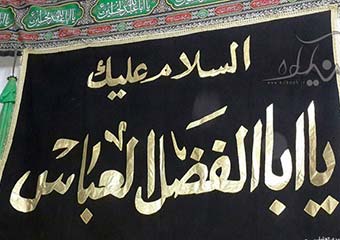 السلام علیك
یا ابا الفضل العباس